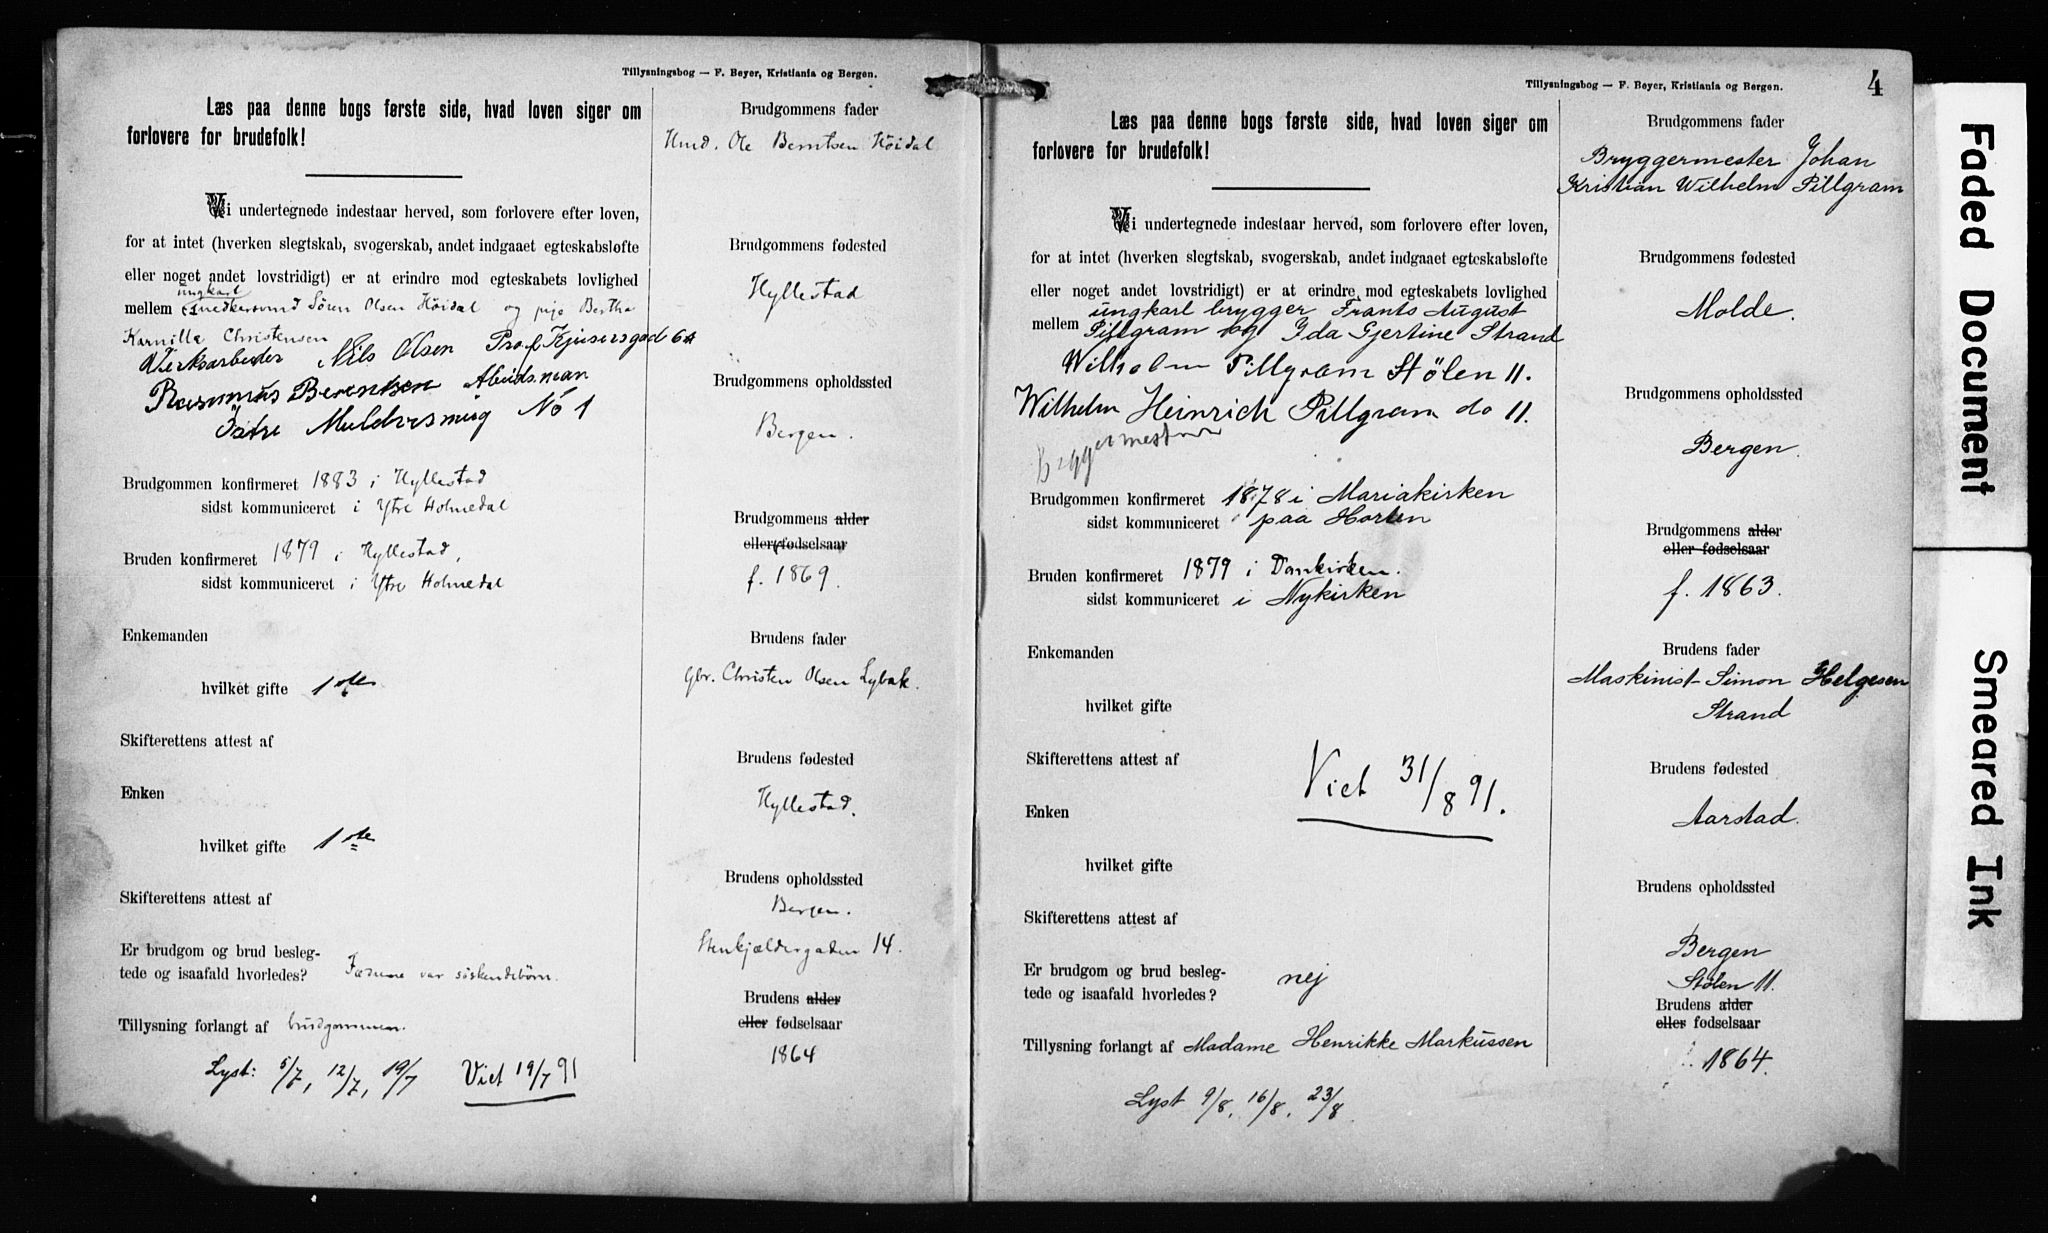 Tillysningsbog — F. Beyer, Kristiania og Bergen.
Læs paa denne bogs første side, hvad loven siger om
forlovere for brudefolk!
Vi undertegnede indestaar herved, som forlovere efter loven,
for at intet (hverken slegtskab, svogerskab, andet indgaaet egteskabsløfte
eller noget andet lovstridigt) er at erindre mod egteskabets lovlighed
ungkarl
mellem snedkersvend Søren Olsen Höidal og pige Bertha
Karnille Christensen
Verksarbeider Nils Olsen Prof. Kejsersgad 6A
Rasmus Berentsen Abeidsman
Östre Muldvsmug No 1
Brudgommen konfirmeret 1883 i Hyllestad
sidst kommuniceret i Ytre Holmedal
Bruden konfirmeret 1879 i Hyllestad,
sidst kommuniceret i Ytre Holmedal
Enkemanden
hvilket gifte 1ste
Skifterettens attest af
Enken
hvilket gifte 1ste
Skifterettens attest af
Er brudgom og brud besleg-
tede og isaafald hvorledes? Fædrene var söskendebörn.
Tillysning forlangt af brudgommen.
Lyst: 5/7, 12/7, 19/7 Viet 19/7 91
Brudgommens fader
Hmd. Ole Berntsen Höidal
Brudgommens fødested
Hyllestad
Brudgommens opholdssted
Bergen.
Brudgommens alder
eller fødselsaar
f. 1869.
Brudens fader
Gbr. Christen Olsen Lybak.
Brudens fødested
Hyllestad.
Brudens opholdssted
Bergen.
Stenkjældergaden 14.
Brudens alder
eller fødselsaar
1864
Tillysningsbog — F. Beyer, Kristiania og Bergen.
4
Læs paa denne bogs første side, hvad loven siger om
forlovere for brudefolk!
Vi undertegnede indestaar herved, som forlovere efter loven,
for at intet (hverken slegtskab, svogerskab, andet indgaaet egteskabsløfte
eller noget andet lovstridigt) er at erindre mod egteskabets lovlighed
ungkarl brygger Frants August
mellem Pillgram og Ida Gjertine Strand
Wilhelm Pillgram Stølen 11.
Wilhelm Heinrich Pillgram do 11.
Bryggermester
Brudgommen konfirmeret 1878 i Mariakirken
sidst kommuniceret paa Horten
Bruden konfirmeret 1879 i Domkirken.
sidst kommuniceret i Nykirken
Enkemanden
hvilket gifte
Skifterettens attest af
Viet 31/8 91.
Enken
hvilket gifte
Skifterettens attest af
Er brudgom og brud besleg-
tede og isaafald hvorledes? nej
Tillysning forlangt af Madame Henrikke Markussen
Lyst 9/8, 16/8, 23/8
Brudgommens fader
Bryggermester Johan
Kristian Wilhelm Pillgram
Brudgommens fødested
Molde.
Brudgommens opholdssted
Bergen.
Brudgommens alder
eller fødselsaar
f. 1863.
Brudens fader
Maskinist Simon Helgesen
Strand
Brudens fødested
Aarstad.
Brudens opholdssted
Bergen
Stølen 11.
Brudens alder
eller fødselsaar
1864.
Faded Document
Smeared Ink